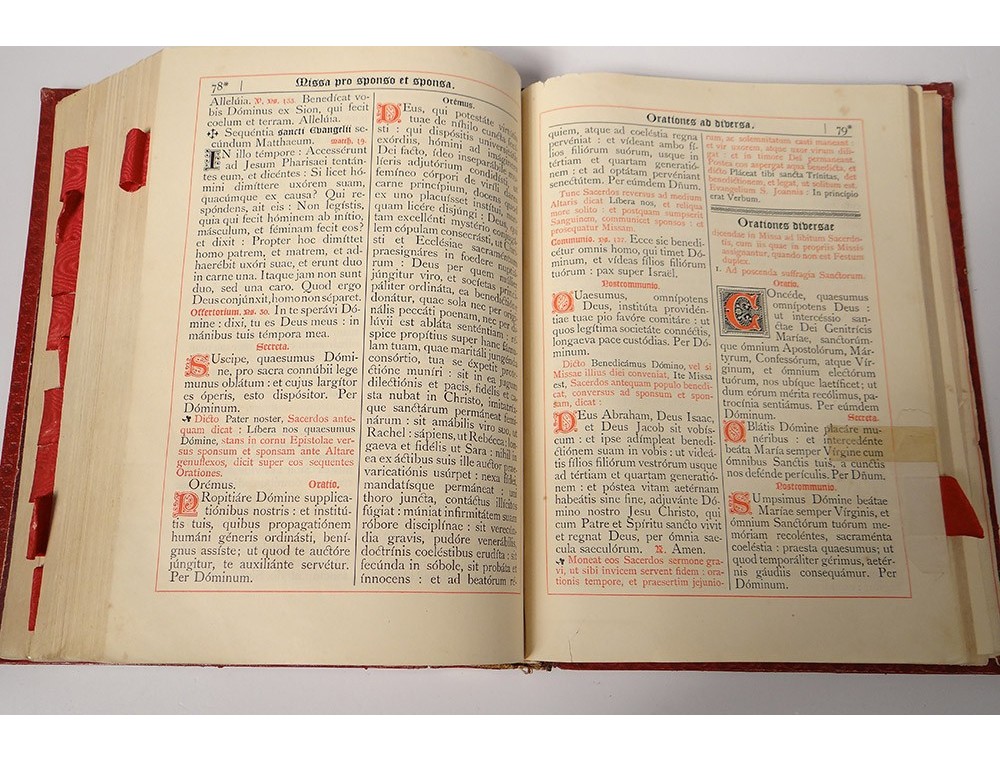 78*
Missa pro sponso et sponsa.
Allelúia. V. Ps. 133. Benedícat vo-
bis Dóminus ex Sion, qui fecit
coelum et terram. Allelúia.
✠ Sequéntia sancti Evangelii se-
cúndum Matthaeum. Matth. 19.
IN illo témpore : Accessérunt
ad Jesum Pharisaei tentán-
tes eum, et dicéntes : Si licet hó-
mini dimíttere uxórem suam,
quacúmque ex causa? Qui re-
spóndens, ait eis : Non legístis,
quia qui fecit hóminem ab inítio,
másculum, et féminam fecit eos?
et dixit : Propter hoc dimíttet
homo patrem, et matrem, et ad-
haerébit uxóri suae, et erunt duo
in carne una. Itaque jam non sunt
duo, sed una caro. Quod ergo
Deus conjúnxit, homo non séparet.
Offertorium. Ps. 30. In te sperávi Dó-
mine : dixi, tu es Deus meus : in
mánibus tuis témpora mea.
Secreta.
SUscipe, quaesumus Dómi-
ne, pro sacra connúbii lege
munus oblátum : et cujus largítor
es óperis, esto dispósitor. Per
Dóminum.
Dicto Pater noster, Sacerdos ante-
quam dicat : Líbera nos quaesumus
Dómine, stans in cornu Epistolae ver-
sus sponsum et sponsam ante Altare
genuflexos, dicit super eos sequentes
Orationes.
Orémus. Oratio.
PRopitiáre Dómine supplica-
tiónibus nostris : et institú-
tis tuis, quibus propagatiónem
humáni géneris ordinásti, bení-
gnus assíste; ut quod te auctóre
júngitur, te auxiliánte servétur.
Per Dóminum.
Orémus.
DEus, qui potestáte virtútis
tuae de níhilo cuncta fecí-
sti : qui dispósitis universitátis
exórdiis, hómini ad imáginem
Dei facto, ídeo inseparábile mu-
líeris adjutórium condidísti, ut
femíneo córpori de viríli dares
carne princípium, docens quod
ex uno placuísset institui, num-
quam licére disjúngi : Deus, qui
tam excellénti mystério conjugá-
lem cópulam consecrásti, ut Chri-
sti et Ecclésiae sacraméntum
praesignáres in foedere nuptiá-
rum : Deus per quem múlier
júngitur viro, et socíetas princi-
páliter ordináta, ea benedictióne
donátur, quae sola nec per origi-
nális peccáti poenam, nec per di-
lúvii est abláta senténtiam : ré-
spice propítius super hanc fámu-
lam tuam, quae maritáli jungénda
consórtio, tua se éxpetit prote-
ctióne muníri : sit in ea jugum
dilectiónis et pacis, fidélis et ca-
sta nubat in Christo, imitatríx-
que sanctárum permáneat femi-
nárum : sit amábilis viro suo, ut
Rachel : sápiens, ut Rebécca; lon-
gaeva et fidélis ut Sara : nihil in
ea ex áctibus suis ille auctor prae-
varicatiónis usúrpet : nexa fídei,
mandatísque permáneat : uni
thoro juncta, contáctus illícitos
fúgiat : múniat infirmitátem suam
róbore disciplínae : sit verecún-
dia gravis, pudóre venerábilis,
doctrínis coeléstibus erudíta : sit
fecúnda in sóbole, sit probáta et
ínnocens : et ad beatórum ré-
Orationes ad diversa.
79*
quiem, atque ad coeléstia regna
pervéniat : et vídeant ambo fí-
lios filiórum suórum, usque in
tértiam et quartam generatió-
nem : et ad optátam pervéniant
senectútem. Per eúmdem Dñum.
Tunc Sacerdos reversus ad medium
Altaris dicat Líbera nos, et reliqua
more solito : et postquam sumpserit
Sanguinem, communicet sponsos : et
prosequatur Missam.
Communio. Ps. 127. Ecce sic benedi-
cétur omnis homo, qui timet Dó-
minum, et vídeas fílios filiórum
tuórum : pax super Israël.
Postcommunio.
QUaesumus, omnípotens
Deus, institúta providén-
tiae tuae pio favóre comitáre : ut
quos legítima societáte connéctis,
longaeva pace custódias. Per Dó-
minum.
Dicto Benedicámus Dómino, vel si
Missae illius diei conveniat, Ite Missa
est, Sacerdos antequam populo benedi-
cat, conversus ad sponsum et spon-
sam, dicat :
DEus Abraham, Deus Isaac,
et Deus Jacob sit vobís-
cum : et ipse adímpleat bene-
ctiónem suam in vobis : ut videá-
tis fílios filiórum vestrórum usque
ad tértiam et quartam generatió-
nem : et póstea vitam aetérnam
habeátis sine fine, adjuvánte Dó-
mino nostro Jesu Christo, qui
cum Patre et Spíritu sancto vivit
et regnat Deus, per ómnia sae-
cula saeculórum. R. Amen.
Moneat eos Sacerdos sermone gra-
vi, ut sibi invicem servent fidem : ora-
tionis tempore, et praesertim jejunio-
rum, ac solemnitatum casti maneant :
et vir uxorem, atque uxor virum dili-
gat : et in timore Dei permaneant.
Postea eos aspergat aqua benedicta, et
dicto Pláceat tibi sancta Trínitas, det
benedictionem, et legat, ut solitum est,
Evangelium S. Joannis : In princípio
erat Verbum.
Orationes diversae
dicendae in Missa ad libitum Sacerdo-
tis, cum iis quae in propriis Missis
assignantur, quando non est Festum
duplex.
1. Ad poscenda suffragia Sanctorum.
Oratio.
COncéde, quaesumus
omnípotens Deus :
ut intercéssio san-
ctae Dei Genitrícis
Mariae, sanctorúm-
que ómnium Apostolórum, Már-
tyrum, Confessórum, atque Vír-
ginum, et ómnium electórum
tuórum, nos ubíque laetíficet; ut
dum eórum mérita recólimus, pa-
trocínia sentiámus. Per eúmdem
Dóminum. Secreta.
OBlátis Dómine placáre mu-
néribus : et intercedénte
beáta María semper Vírgine cum
ómnibus Sanctis tuis, a cunctis
nos defénde perículis. Per Dñum.
Postcommunio.
SUmpsimus Dómine beátae
Maríae semper Vírginis, et
ómnium Sanctórum tuórum me-
móriam recoléntes, sacraménta
coeléstia : praesta quaesumus; ut
quod temporáliter gérimus, aetér-
nis gáudiis consequámur. Per
Dóminum.